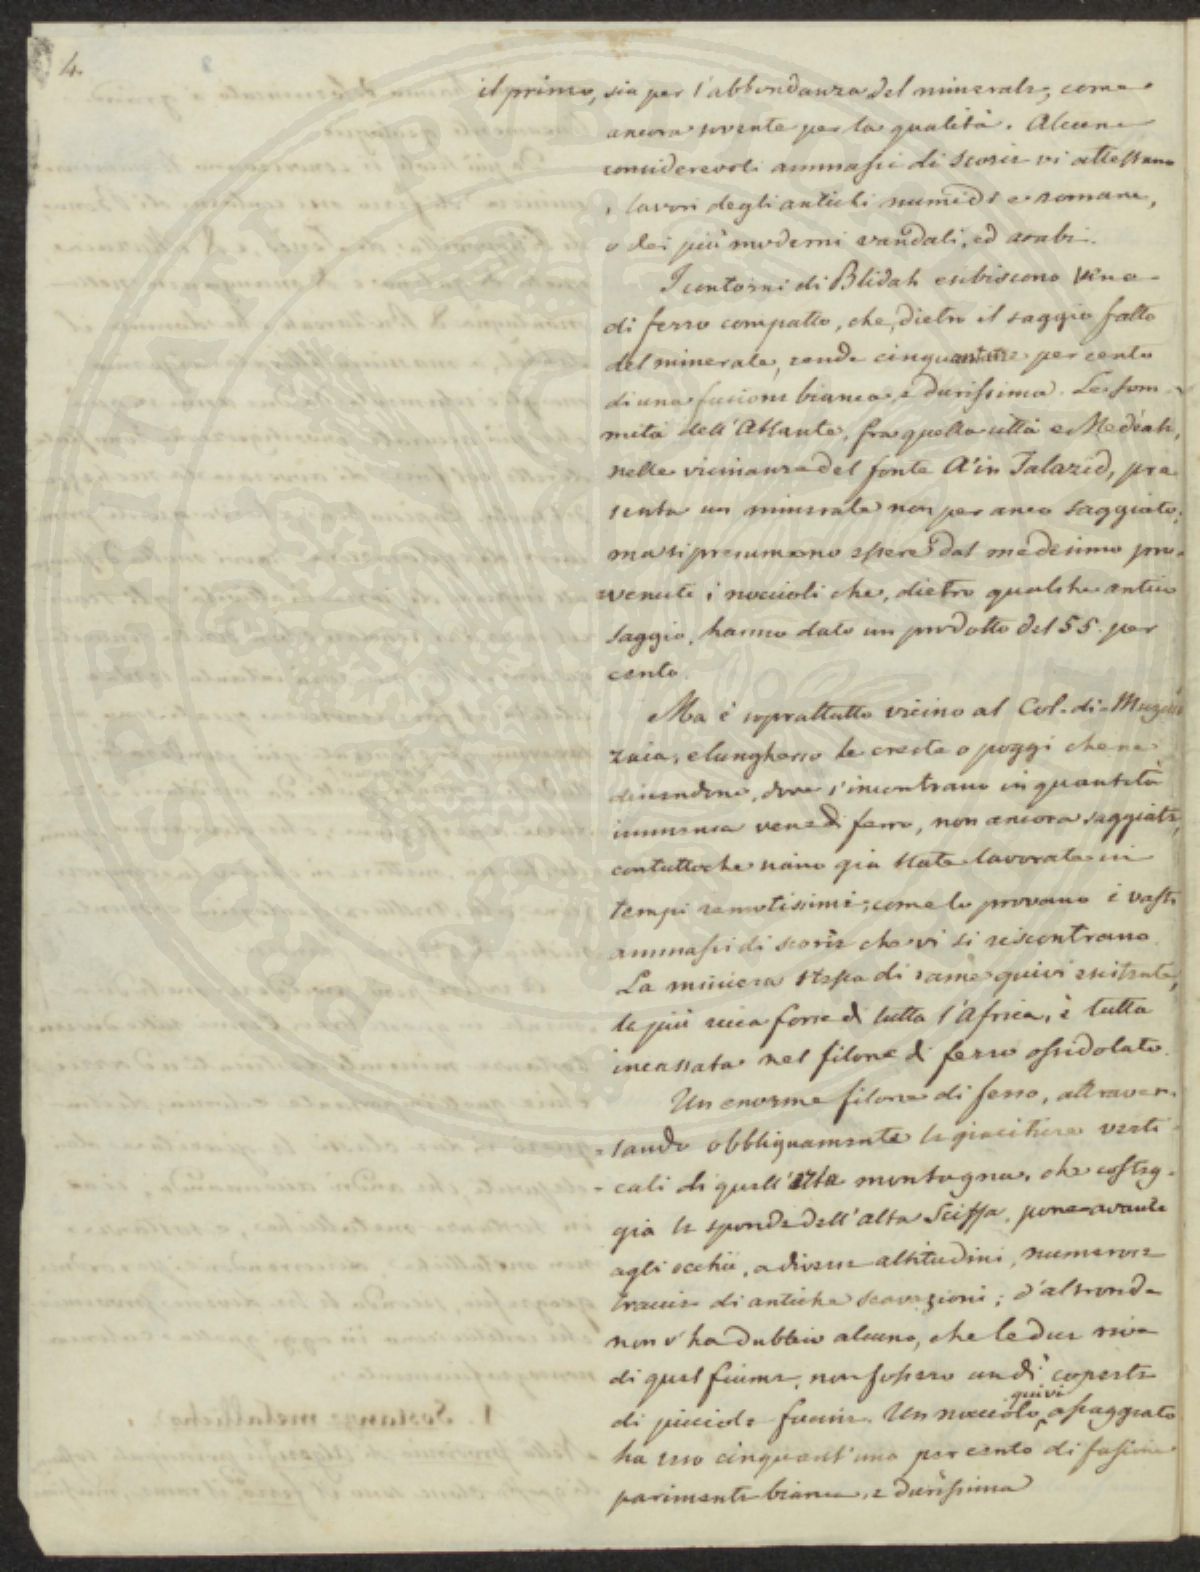 4.
il primo, sia per l'abbondanza del minerale, come
ancora sovente per la qualità. Alcuni
considerevoli ammassi di scorie vi attestano
i lavori degli antichi numidi e romani,
o dei più moderni vandali, ed arabi.
I contorni di Blidah esibiscono vene
di ferro compatto, che, dietro il saggio fatto
del minerale, rende cinquantatre per cento
di una fusione bianca, e durissima. Le som-
mità dell'Atlante, fra quella città e Medéah,
nelle vicinanze del fonte A'in Talazid, pre
senta un minerale non per anco saggiato;
ma si presumono essere dal medesimo pro-
venuti i noccioli che, dietro qualche antico
saggio, hanno dato un prodotto del 55. per
cento.
Ma è soprattutto vicino al Col-di-Muza
zaia, e lunghesso le creste o poggi che ne
discendono, dove s'incontrano in quantità
immensa vene di ferro, non ancora saggiate,
contuttoche siano già state lavorate in
tempi remotissimi; come lo provano i vasti
ammassi di scorie che vi si riscontrano.
La miniera stessa di rame quivi esistente,
la più ricca forse di tutta l'Africa, è tutta
incassata nel filone di ferro ossidolato.
Un enorme filone di ferro, attraver-
sando obbliquamente le giaciture verti-
cali di quell'alta montagna, che costeg-
gia le sponde dell'alta Sciffa, pone avanti
agli occhi, a diverse altitudini, numerose
traccie di antiche scavazioni; d'altronde
non v'ha dubbio alcuno, che le due rive
di quel fiume, non fossero un dì coperte
di picciole fucine. Un nocciolo quivi assaggiato
ha reso cinquant'uno per cento di fusione
parimente bianca, e durissima